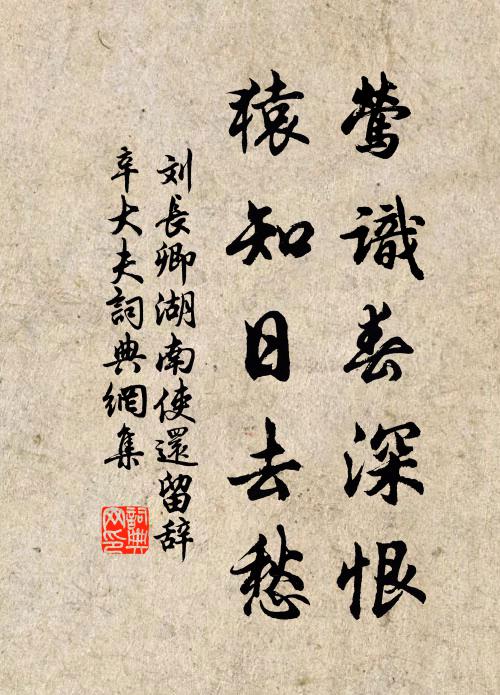 莺識春深恨
猿知日去愁
刘長卿湖南使還留辞
辛大夫詞典網集
詞典网印